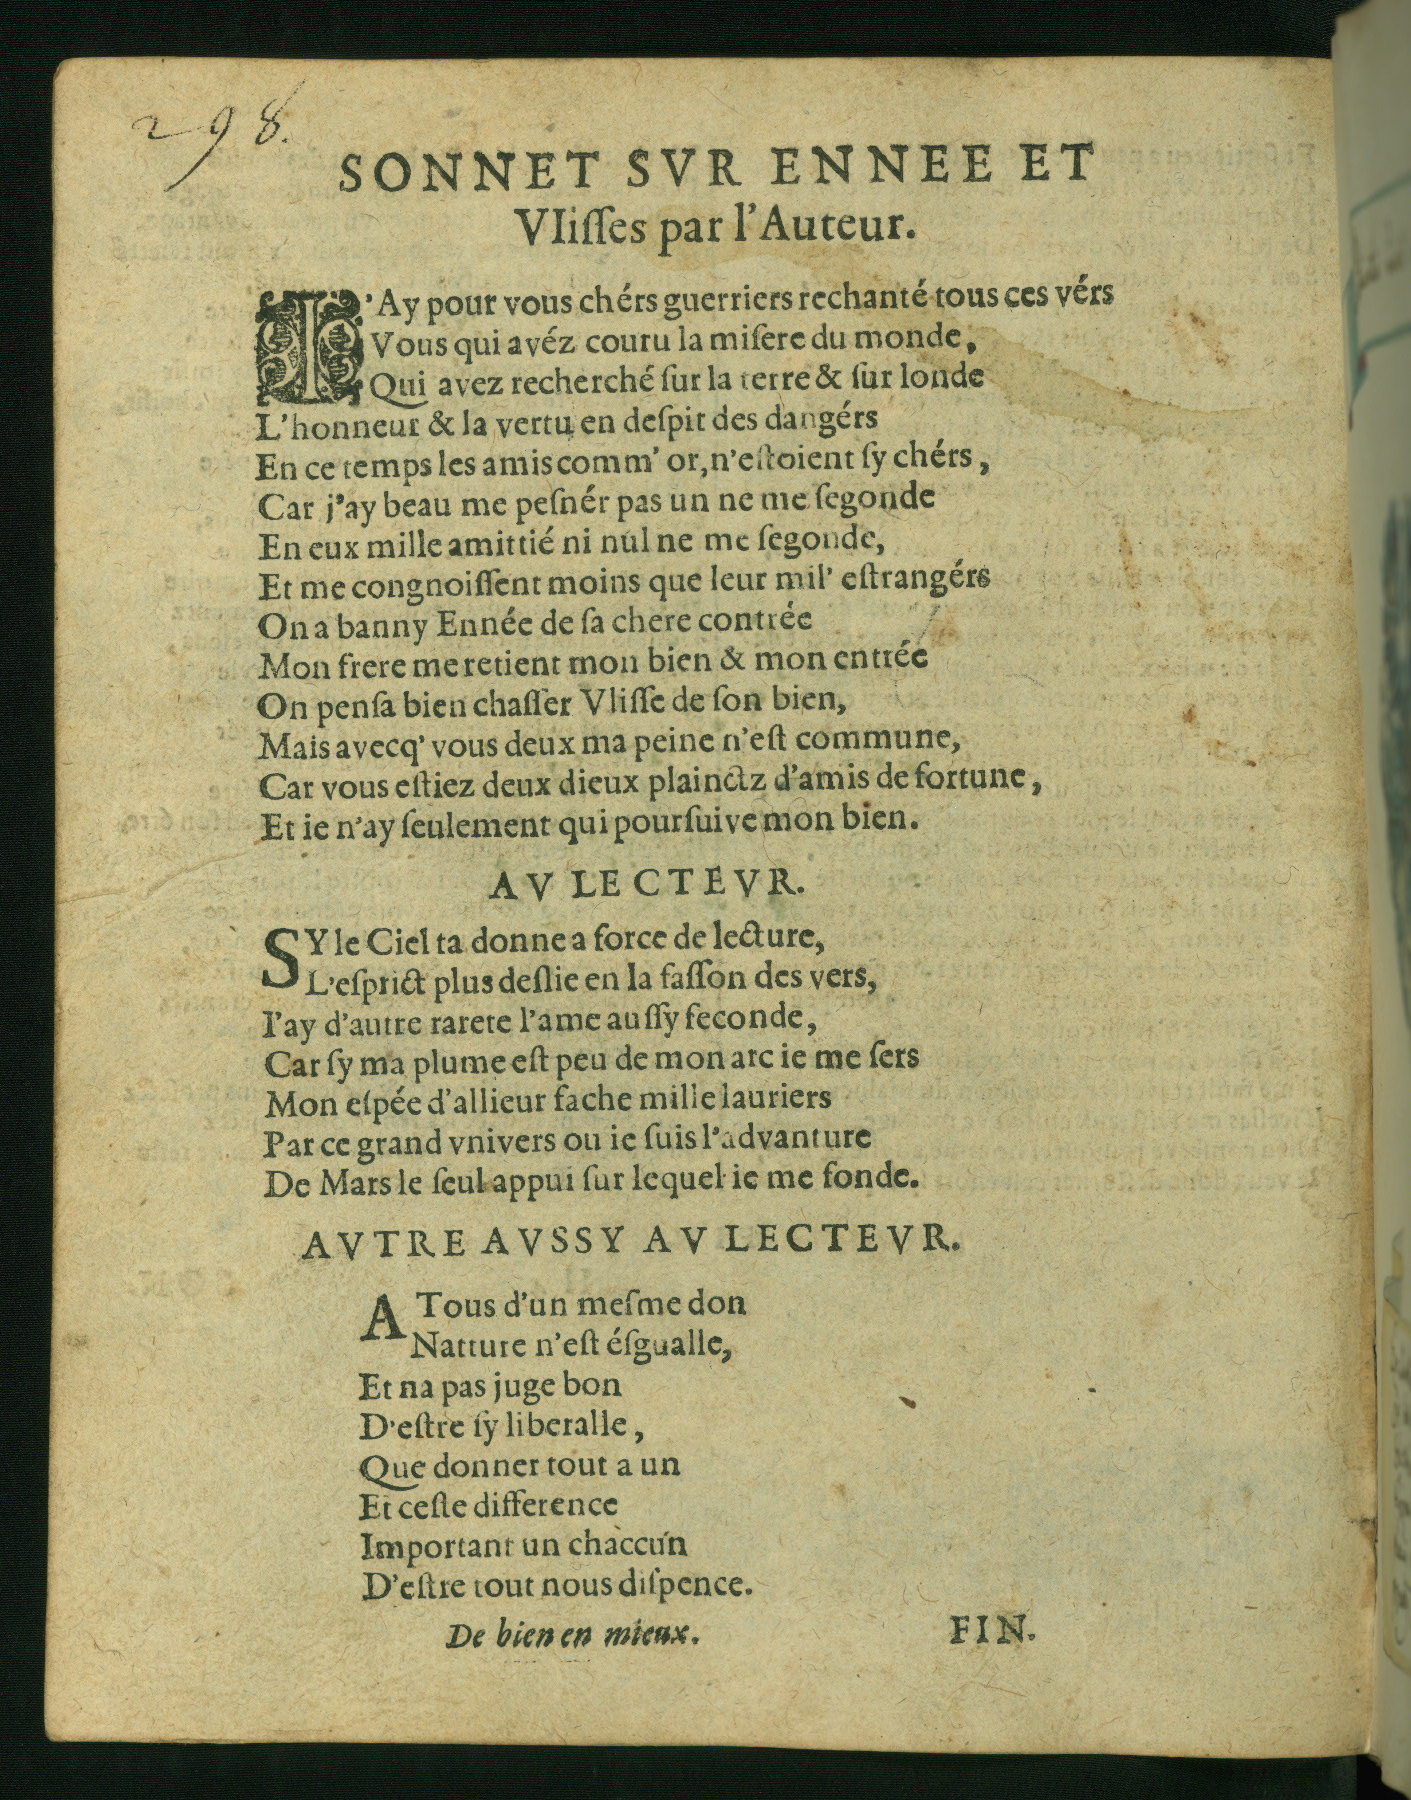 298.
SONNET SVR ENNEE ET
VIiſſes par l'Auteur.
I'Ay pour vous chérs guerriers rechanté tous ces vérs
Vous qui avéz couru la miſere du monde,
Qui avez recherché ſur la terre & ſur londe
L'honneur & la vertu en deſpit des dangérs
En ce temps les amis comm' or, n'eſtoient ſy chérs,
Car j'ay beau me peſnér pas un ne me ſegonde
En eux mille amittié ni nul ne me ſegonde,
Et me congnoiſſent moins que leur mil' eſtrangérs
On a banny Ennée de ſa chere contrée
Mon frere me retient mon bien & mon entrée
On penſa bien chaſſer Vliſſe de ſon bien,
Mais avecq' vous deux ma peine n'eſt commune,
Car vous eſtiez deux dieux plainctz d'amis de fortune,
Et ie n'ay ſeulement qui pourſuive mon bien.
AV LECTEVR.
SY le Ciel ta donne a force de lecture,
L'eſprict plus deſlie en la faſſon des vers,
I'ay d'autre rarete l'ame auſſy feconde,
Car ſy ma plume eſt peu de mon arc ie me ſers
Mon eſpée d'allieur fache mille lauriers
Par ce grand vnivers ou ie ſuis l'advanture
De Mars le ſeul appui ſur lequel ie me fonde.
AVTRE AVSSY AV LECTEVR.
A Tous d'un meſme don
Natture n'eſt éſgualle,
Et na pas juge bon
D'eſtre ſy liberalle,
Que donner tout a un
Et ceſte difference
Important un chaccun
D'eſtre tout nous diſpence.
De bien en mieux. FIN.